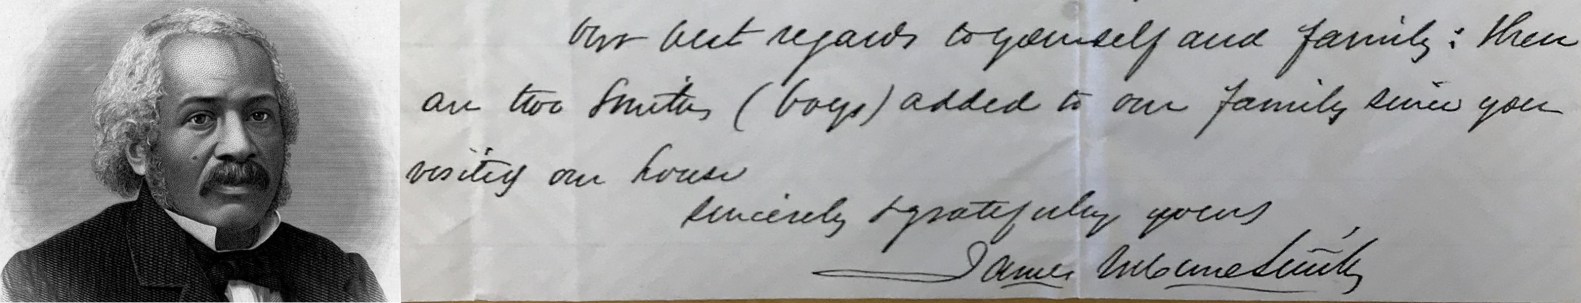 our best regards to yourself and family: there
are two Smiths (boys) added to our family since you
visited our house
sincerely & gratefully yours,
James McCune Smith